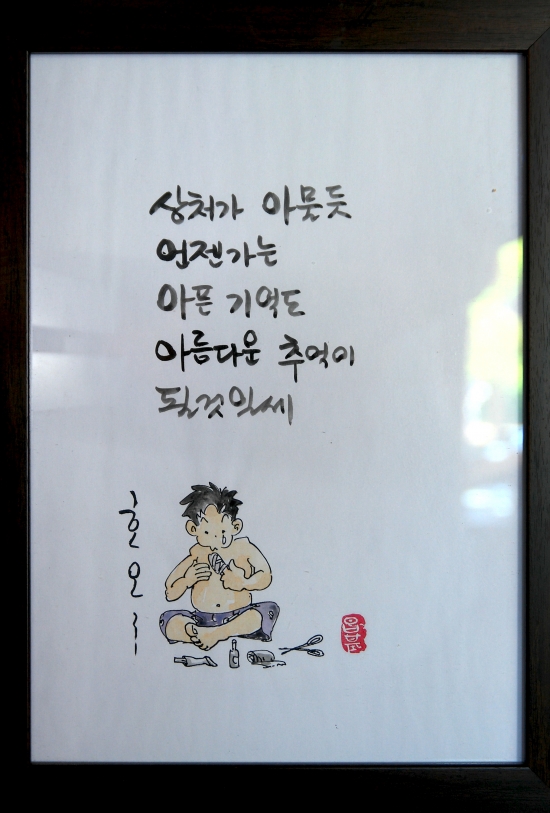 상처가 아물듯
언젠가는
아픈 기억도
아름다운 추억이
될것일세
호오~